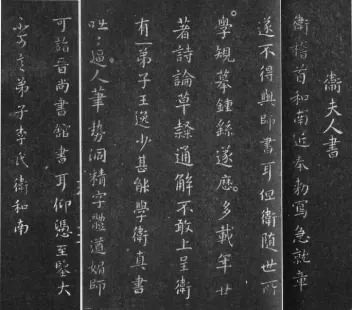 衛夫人書
衛稽首和南近奉勑寫急就章
遂不得與師書耳但衛隨世所
學規摹鍾繇遂歷多載年廿
著詩論草隸通解不敢上呈衛
有一弟子王逸少甚能學衛真書
咄咄逼人筆勢洞精字體遒媚師
可詣晉尚書館書耳仰憑至鑒大
不可言弟子李氏衛和南